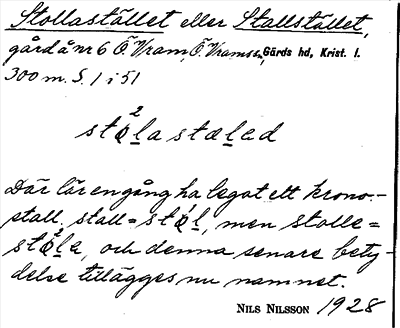 Stollastället eller Stallstället,
gård å nr 6 Ö. Vram, Ö. Vrams sn, Gärds hd, Krist. l.
300 m. S. 1 i 51
stǫ²l̲a stæl̲ed
Där lär en gång ha legat ett krono-
stall, stall = stǫ́l̲, men stolle =
stǫ²l̲a, och denna senare bety-
delse tillägges nu namnet.
NILS NILSSON 1928